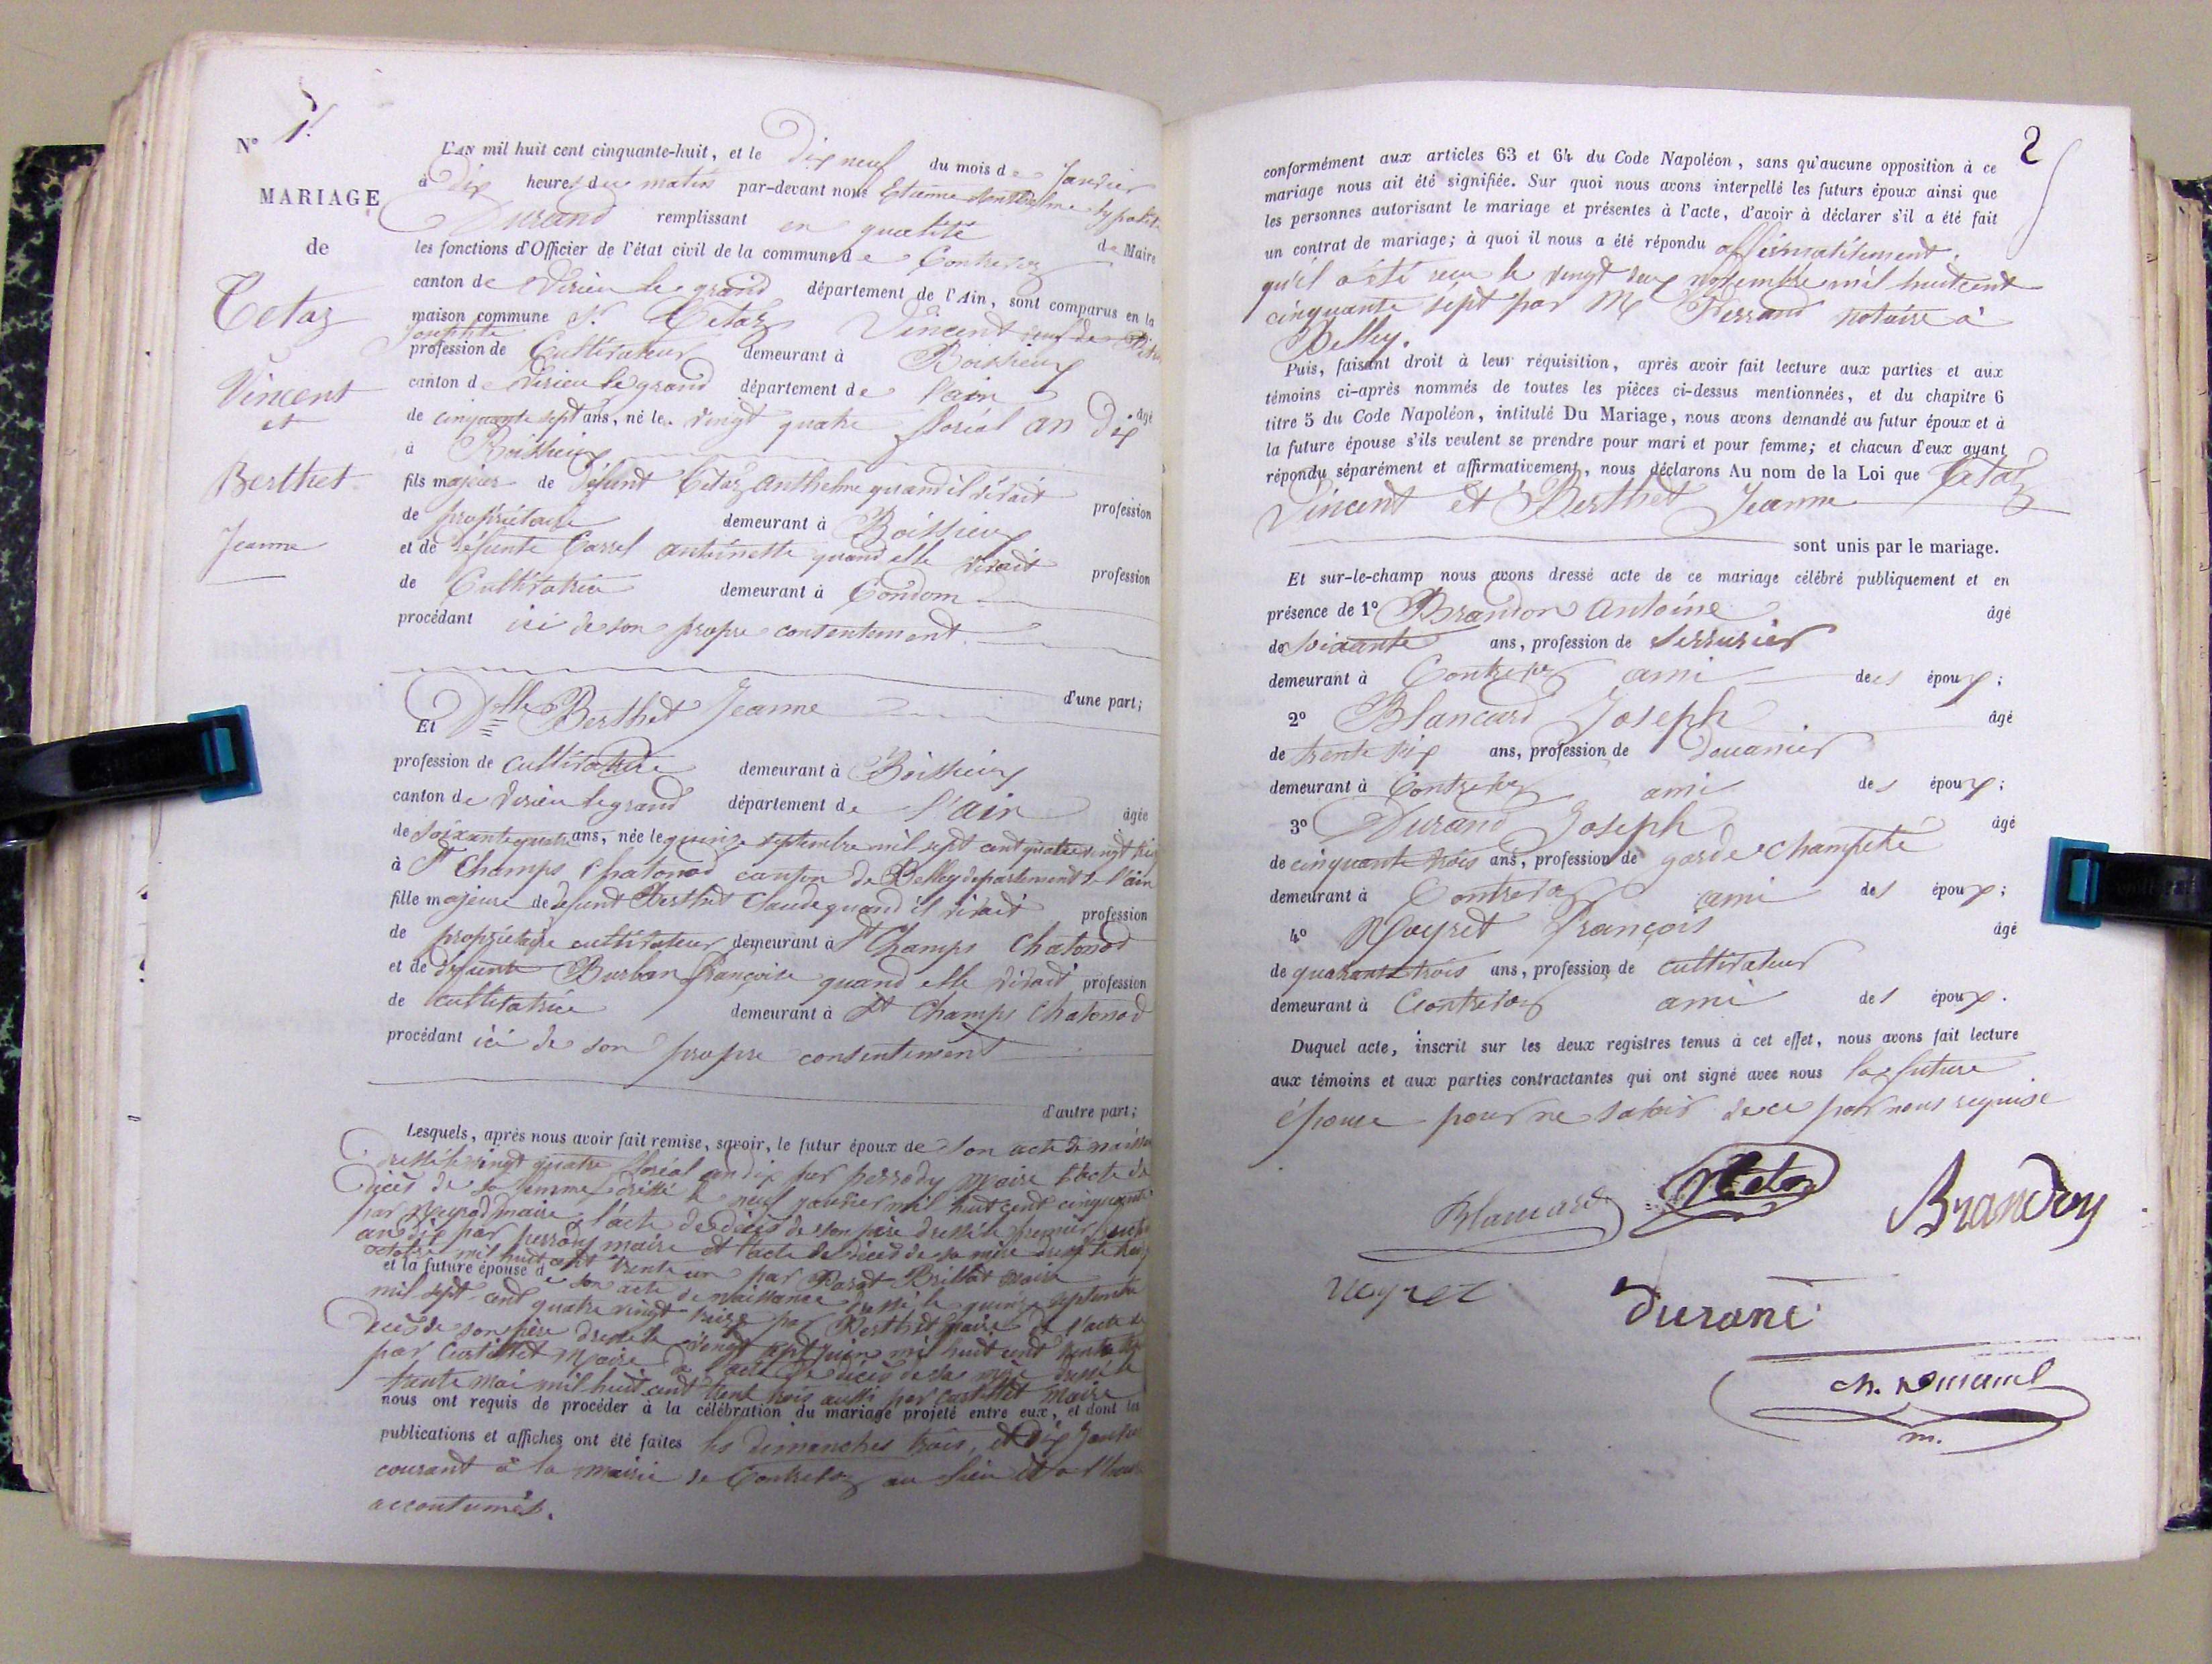 N° 1.
MARIAGE
de
Tetaz
Vincent
et
Berthet
Jeanne
L'AN mil huit cent cinquante-huit, et le Dix neuf du mois de Janvier
à Dix heures du matin par-devant nous Etienne Anthelme hypolite
Durand remplissant en qualité de Maire
les fonctions d'Officier de l'état civil de la commune de Contrevoz
canton de Virieu le grand département de l'Ain, sont comparus en la
maison commune Sr Tetaz Vincent veuf de
Josephte
profession de Cultivateur demeurant à Boissieux
canton de Virieu le grand département de l'ain âgé
de cinquante sept ans, né le vingt quatre floréal an Dix
à Boissieux
fils majeur de Défunt Tetaz Anthelme quand il vivait profession
de propriétaire demeurant à Boissieux
et de défunte Carrel antoinette quand elle vivait profession
de Cultivatrice demeurant à Condom
procédant ici de son propre consentement.
d'une part;
Et Dlle Berthet Jeanne
profession de cultivatrice demeurant à Boissieux
canton de Virieu le grand département de l'ain âgée
de soixante quatre ans, née le quinze septembre mil sept cent quatre vingt treize
à St Champs Chatonod canton de Belley département de l'ain
fille majeure de defunt Berthet Claude quand il vivait profession
de propriétaire cultivateur demeurant à St Champs Chatonod
et de defunte Burban françoise quand elle vivait profession
de cultivatrice demeurant à St Champs Chatonod
procédant ici de son propre consentement
d'autre part;
Lesquels, après nous avoir fait remise, savoir, le futur époux de son acte de naissance
dressé le vingt quatre floréal an dix par perrody maire l'acte de
décès de sa femme dressé le neuf janvier mil huit cent cinquante
par Neyrod maire, l'acte de décès de son père dressé le premier
an dix par perrody maire et l'acte de décès de sa mère dressé le
octobre mil huit cent trente un par Parat Brillat maire
et la future épouse de son acte de naissance dressé le quinze septembre
mil sept cent quatre vingt treize par Berthet maire de l'acte de
décès de son père dressé le vingt sept juin mil huit cent trente
par Custillet Maire & l'acte de décès de sa mère dressé le
trente mai mil huit cent trente trois aussi par Custillet maire
nous ont requis de procéder à la célébration du mariage projeté entre eux, et dont les
publications et affiches ont été faites les dimanches trois, et Dix Janvier
courant à la mairie de Contrevoz au lieu et à l'heure
accoutumés.
2
conformément aux articles 63 et 64 du Code Napoléon, sans qu'aucune opposition à ce
mariage nous ait été signifiée. Sur quoi nous avons interpellé les futurs époux ainsi que
les personnes autorisant le mariage et présentes à l'acte, d'avoir à déclarer s'il a été fait
un contrat de mariage; à quoi il nous a été répondu affirmativement.
qu'il a été reçu le vingt deux novembre mil huit cent
cinquante sept par Me Ferrand notaire à
Belley.
Puis, faisant droit à leur réquisition, après avoir fait lecture aux parties et aux
témoins ci-après nommés de toutes les pièces ci-dessus mentionnées, et du chapitre 6
titre 5 du Code Napoléon, intitulé Du Mariage, nous avons demandé au futur époux et à
la future épouse s'ils veulent se prendre pour mari et pour femme; et chacun d'eux ayant
répondu séparément et affirmativement, nous déclarons Au nom de la Loi que Tetaz
Vincent et Berthet Jeanne
sont unis par le mariage.
Et sur-le-champ nous avons dressé acte de ce mariage célébré publiquement et en
présence de 1° Brandon Antoine âgé
de soixante ans, profession de serrurier
demeurant à Contrevoz ami des époux;
2° Blancard Joseph âgé
de trente six ans, profession de douanier
demeurant à Contrevoz ami des époux;
3° Durand Joseph âgé
de cinquante trois ans, profession de garde champêtre
demeurant à Contrevoz ami des époux;
4° Neyret françois âgé
de quarante trois ans, profession de cultivateur
demeurant à Contrevoz ami des époux.
Duquel acte, inscrit sur les deux registres tenus à cet effet, nous avons fait lecture
aux témoins et aux parties contractantes qui ont signé avec nous la future
épouse pour ne savoir de ce par nous requise
Blancard Brandon
neyret durand